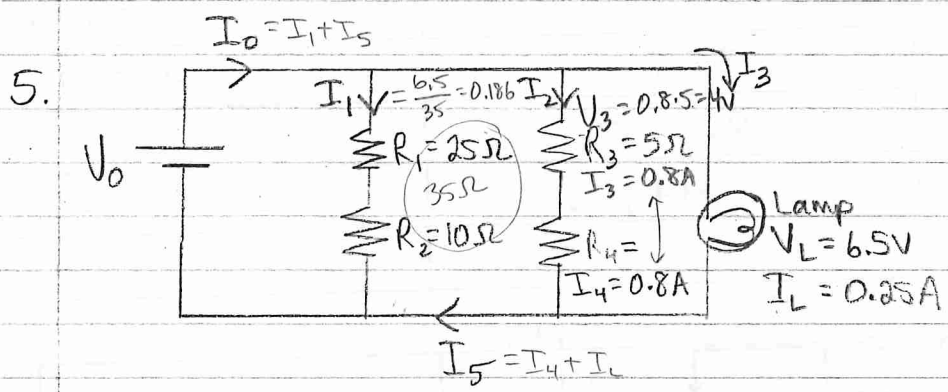 I₀ = I₁ + I₅
5.
I₃
I₁ = 6.5/35 = 0.186
I₂
V₃ = 0.8·5 = 4V
V₀
R₁ = 25Ω
R₃ = 5Ω
35Ω
I₃ = 0.8A
R₂ = 10Ω
R₄ =
I₄ = 0.8A
Lamp
V_L = 6.5V
I_L = 0.25A
I₅ = I₄ + I_L